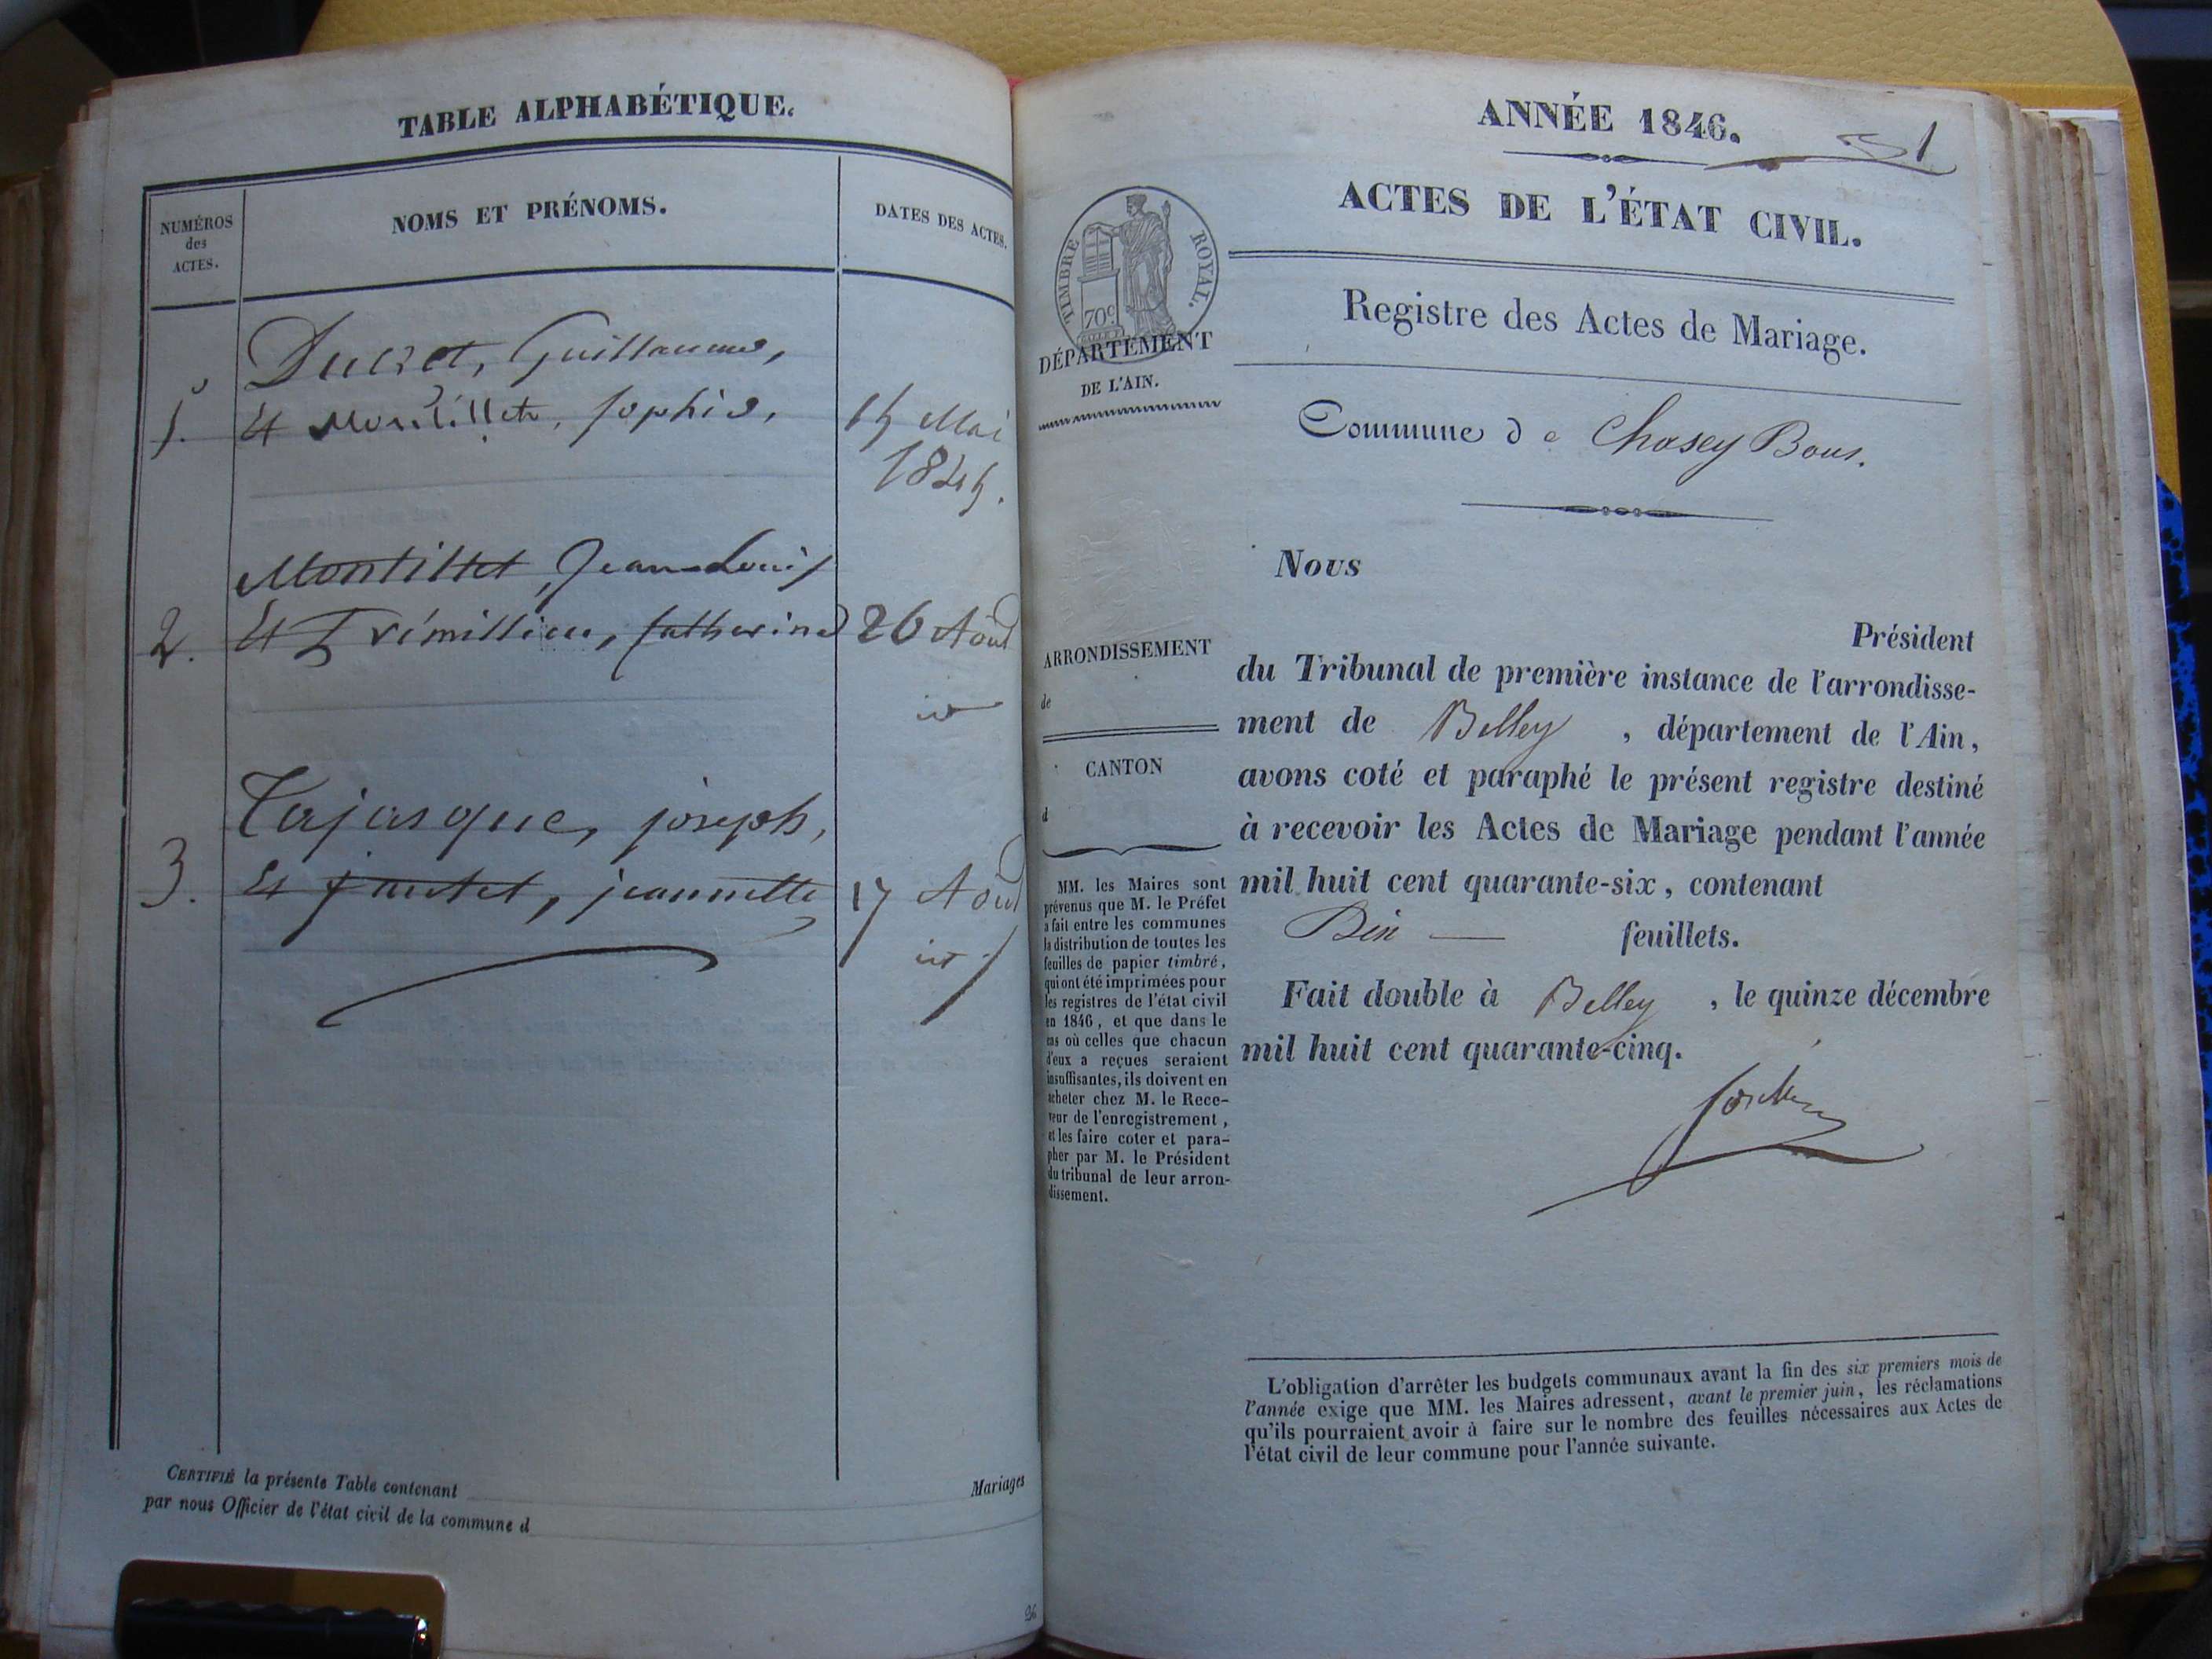 TABLE ALPHABÉTIQUE.
NUMÉROS
des
ACTES.
NOMS ET PRÉNOMS.
DATES DES ACTES.
Ducret, Guillaume,
1. Et Montillet, Sophie, 15 Mai
1845.
Montillet, Jean-Louis
2. Et Trémillieu, Catherine 26 Août
id
Tajasque, joseph,
3. Et jantet, jeannette 17 Août
id
CERTIFIÉ la présente Table contenant Mariages
par nous Officier de l'état civil de la commune d
ANNÉE 1846.
1
ACTES DE L'ÉTAT CIVIL.
TIMBRE ROYAL.
70c
DÉPARTEMENT
DE L'AIN.
Registre des Actes de Mariage.
Commune de Chasey Bons.
Nous
Président
du Tribunal de première instance de l'arrondisse-
ment de Belley , département de l'Ain,
avons coté et paraphé le présent registre destiné
à recevoir les Actes de Mariage pendant l'année
mil huit cent quarante-six, contenant
Dix feuillets.
Fait double à Belley , le quinze décembre
mil huit cent quarante-cinq.
ARRONDISSEMENT
de
CANTON
d
MM. les Maires sont
prévenus que M. le Préfet
a fait entre les communes
la distribution de toutes les
feuilles de papier timbré,
qui ont été imprimées pour
les registres de l'état civil
en 1846, et que dans le
cas où celles que chacun
d'eux a reçues seraient
insuffisantes, ils doivent en
acheter chez M. le Rece-
veur de l'enregistrement,
et les faire coter et para-
pher par M. le Président
du tribunal de leur arron-
dissement.
L'obligation d'arrêter les budgets communaux avant la fin des six premiers mois de
l'année exige que MM. les Maires adressent, avant le premier juin, les réclamations
qu'ils pourraient avoir à faire sur le nombre des feuilles nécessaires aux Actes de
l'état civil de leur commune pour l'année suivante.